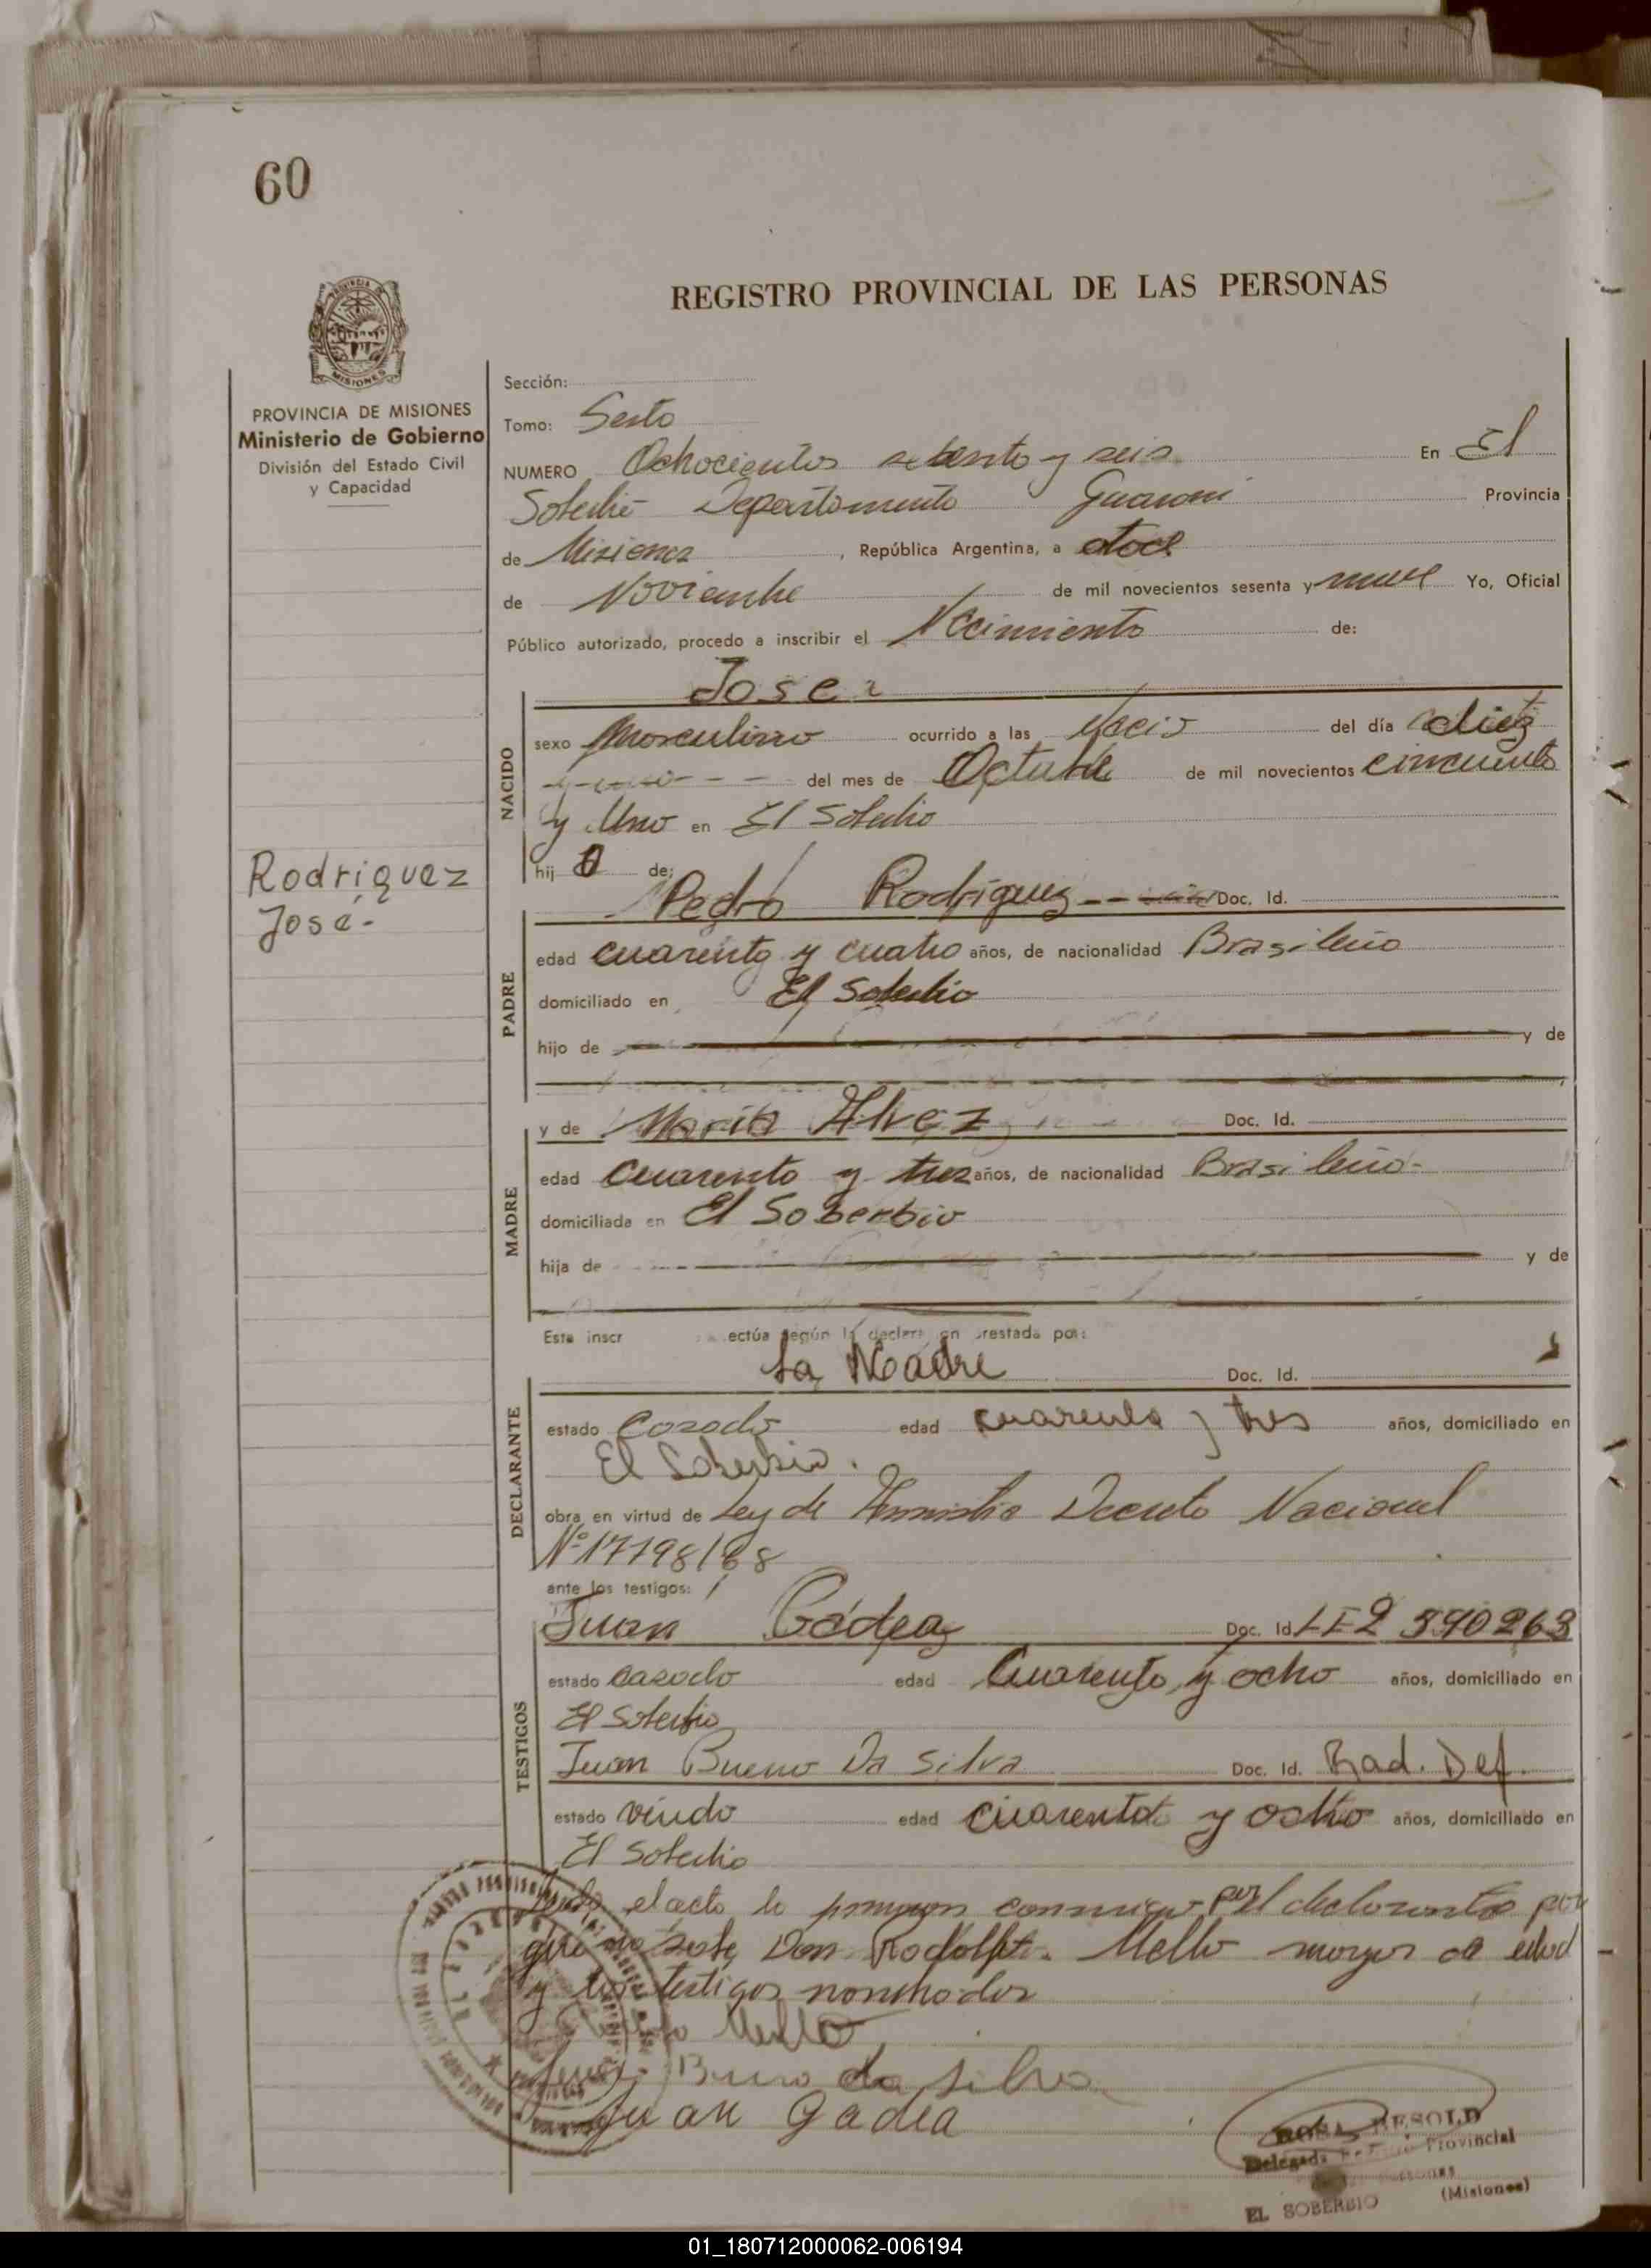 60
REGISTRO PROVINCIAL DE LAS PERSONAS
MISIONES
PROVINCIA DE MISIONES
Ministerio de Gobierno
División del Estado Civil
y Capacidad
Sección:
Tomo: Sesto
NUMERO Ochocientos setenta y seis En El
Soberbio Departamento Guarani Provincia
de Misiones, República Argentina, a doce
de Noviembre de mil novecientos sesenta y nueve Yo, Oficial
Público autorizado, procedo a inscribir el Nacimiento de:
Jose
Rodriguez
José-
NACIDO
sexo Masculino ocurrido a las Nacio del día diez
del mes de Octubre de mil novecientos cincuenta
y Uno en El Soberbio
hijo de:
Pedro Rodriguez Doc. Id.
PADRE
edad cuarenta y cuatro años, de nacionalidad Brasileño
domiciliado en El Soberbio
hijo de y de
y de Maria Alvez Doc. Id.
MADRE
edad cuarenta y tres años, de nacionalidad Brasileña-
domiciliada en El Soberbio
hija de y de
Esta inscr ectúa según la declaración prestada por:
La Madre Doc. Id.
DECLARANTE
estado Casada edad cuarenta y tres años, domiciliado en
El Soberbio.
obra en virtud de Ley de Amnistia Decreto Nacional
Nº 17798/68
ante los testigos:
Juan Gádea Doc. Id LE2 390263
TESTIGOS
estado casado edad Cuarenta y ocho años, domiciliado en
El Soberbio
Juan Bueno Da Silva Doc. Id. Rad. Def.
estado viudo edad cuarenta y ocho años, domiciliado en
El Soberbio
el acto lo firman conmigo por el declarante por
que no sabe, Don Rodolfo Mello mayor de edad
y los testigos nombrados
Mello
Bueno da Silva
Juan Gadea
ROSA BESOLD
Delegada Provincial
EL SOBERBIO (Misiones)
01_180712000062-006194